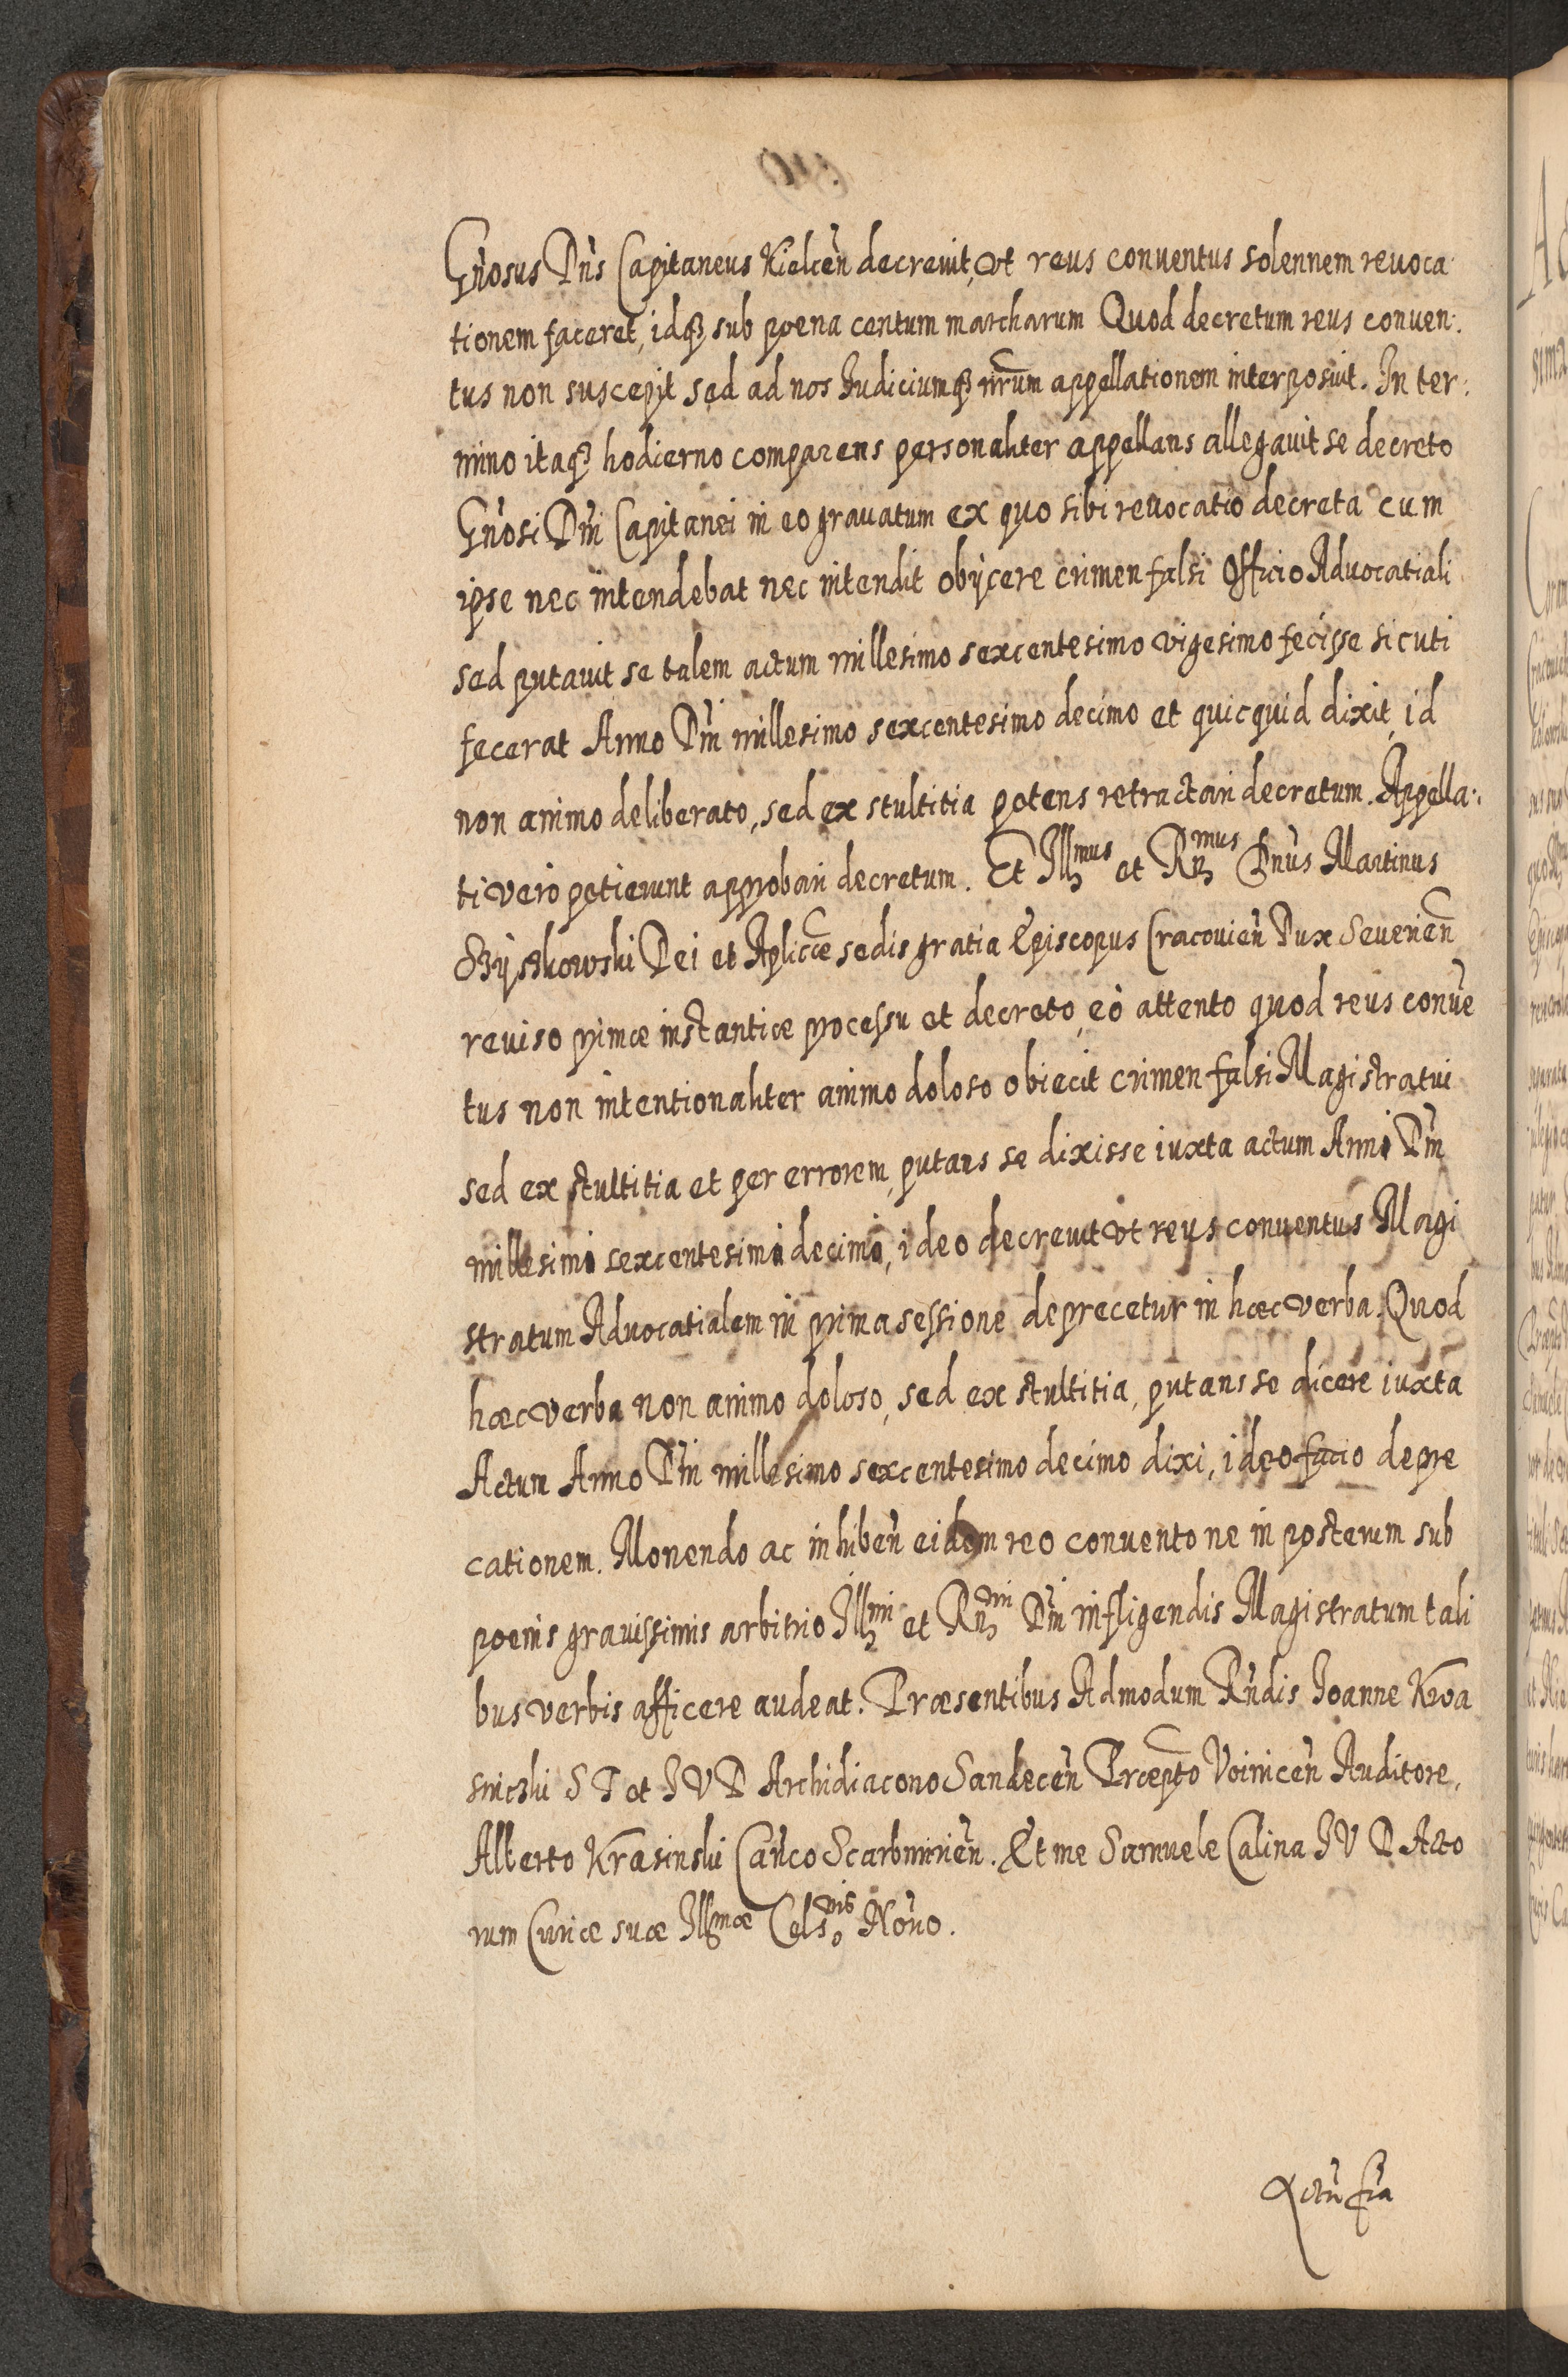 Gn̄osus Dn̄s Capitaneus Kielcen̄ decrevit, vt reus conuentus solennem reuoca
tionem faceret, idq3 sub poena centum marcharum Quod decretum reus conuen:
tus non suscepit sed ad nos Iudiciumq3 nr̄um appellationem interposuit. In ter:
mino itaq3 hodierno comparens personaliter appellans allegauit se decreto
Gn̄osi Dn̄i Capitanei in eo grauatum ex quo sibi reuocatio decreta cum
ipse nec intendebat nec intendit obijcere crimen falsi Officio Aduocatiali
sed putauit se talem actum millesimo sexcentesimo vigesimo fecisse sicuti
fecerat Anno Dn̄i millesimo sexcentesimo decimo et quicquid dixit, id
non animo deliberato, sed ex stultitia petens retractari decretum. Appella:
ti vero petierunt approbari decretum. Et Illmus et Rnmus Dnus Martinus
Szyszkowski Dei et Aplicæ sedis gratia Episcopus Cracouien̄ Dux Seuerien̄
reuiso primæ instantiæ processu et decreto, eò attento quod reus conue
tus non intentionaliter animo doloso obiecit crimen falsi Magistratui
sed ex stultitia et per errorem, putans se dixisse iuxta actum Anni Dn̄i
millesimi sexcentesimi decimi, ideo decreuit vt reus conuentus Magi
stratum Aduocatialem in prima sessione deprecetur in hæc verba. Quod
hæc verba non animo doloso, sed ex stultitia, putans se dicere iuxta
Actum Anno Dn̄i millesimo sexcentesimo decimo dixi, ideo facio depre
cationem. Monendo ac inhiben̄ eidem reo conuento ne in posterum sub
poenis grauissimis arbitrio Illmi et Rnmi Dn̄i infligendis Magistratum tali
bus verbis afficere audeat. Præsentibus Admodum Rn̄dis Ioanne Kwa
sniczki S T et I V D Archidiacono Sandecen̄ Præpto Voinicen̄ Auditore,
Alberto Krasinski Can̄co Scarbimirien̄. Et me Samuele Calina I V D Acto
rum Curiæ suæ Illmæ Celsnis Noṙio.
Actū fīa